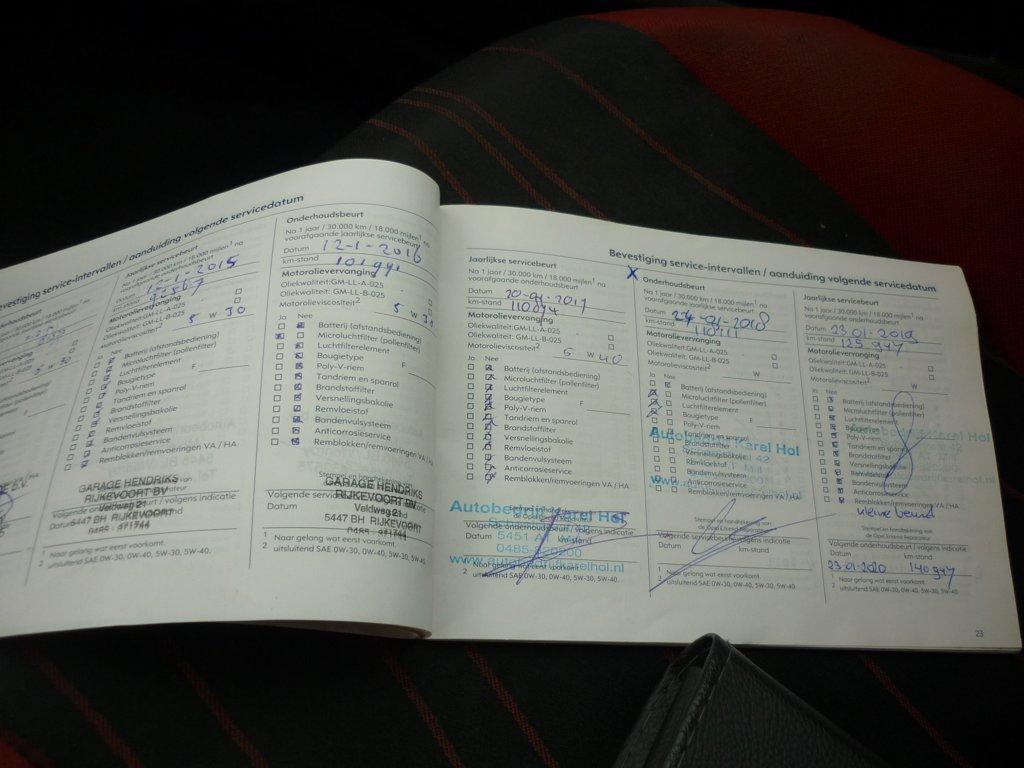 Bevestiging service-intervallen / aanduiding volgende servicedatum
Jaarlijkse servicebeurt
Na 1 jaar / 30.000 km / 18.000 mijlen¹ na
voorafgaande onderhoudsbeurt
Datum 12-1-2015
km-stand
Motorolievervanging
Oliekwaliteit: GM-LL-A-025
Oliekwaliteit: GM-LL-B-025
Motorolieviscositeit² 5 W 30
Ja Nee
Batterij (afstandsbediening)
Microluchtfilter (pollenfilter)
Luchtfilterelement
Bougietype F
Poly-V-riem
Tandriem en spanrol
Brandstoffilter
Versnellingsbakolie
Remvloeistof
Bandenvulsysteem
Anticorrosieservice
Remblokken/remvoeringen VA / HA
GARAGE HENDRIKS
RIJKEVOORT BV
Veldweg 21
5447 BH RIJKEVOORT
0485 - 371744
1 Naar gelang wat eerst voorkomt.
2 uitsluitend SAE 0W-30, 0W-40, 5W-30, 5W-40.
Onderhoudsbeurt
Na 1 jaar / 30.000 km / 18.000 mijlen¹ na
voorafgaande jaarlijkse servicebeurt
Datum 12-1-2016
km-stand 101991
Motorolievervanging
Oliekwaliteit: GM-LL-A-025
Oliekwaliteit: GM-LL-B-025
Motorolieviscositeit² 5 W 30
Ja Nee
Batterij (afstandsbediening)
Microluchtfilter (pollenfilter)
Luchtfilterelement
Bougietype F
Poly-V-riem
Tandriem en spanrol
Brandstoffilter
Versnellingsbakolie
Remvloeistof
Bandenvulsysteem
Anticorrosieservice
Remblokken/remvoeringen VA / HA
GARAGE HENDRIKS
RIJKEVOORT BV
Veldweg 21
5447 BH RIJKEVOORT
0485 - 371744
1 Naar gelang wat eerst voorkomt.
2 uitsluitend SAE 0W-30, 0W-40, 5W-30, 5W-40.
Bevestiging service-intervallen / aanduiding volgende servicedatum
Jaarlijkse servicebeurt
Na 1 jaar / 30.000 km / 18.000 mijlen¹ na
voorafgaande onderhoudsbeurt
Datum 20-01-2017
km-stand 110894
Motorolievervanging
Oliekwaliteit: GM-LL-A-025
Oliekwaliteit: GM-LL-B-025
Motorolieviscositeit² 5 W 40
Ja Nee
Batterij (afstandsbediening)
Microluchtfilter (pollenfilter)
Luchtfilterelement
Bougietype F
Poly-V-riem
Tandriem en spanrol
Brandstoffilter
Versnellingsbakolie
Remvloeistof
Bandenvulsysteem
Anticorrosieservice
Remblokken/remvoeringen VA / HA
Autobedrijf Karel Hol
Volgende onderhoudsbeurt / volgens indicatie
Datum km-stand
1 Naar gelang wat eerst voorkomt.
2 uitsluitend SAE 0W-30, 0W-40, 5W-30, 5W-40.
X Onderhoudsbeurt
Na 1 jaar / 30.000 km / 18.000 mijlen¹ na
voorafgaande jaarlijkse servicebeurt
Datum 24-01-2018
km-stand
Motorolievervanging
Oliekwaliteit: GM-LL-A-025
Oliekwaliteit: GM-LL-B-025
Motorolieviscositeit² W
Ja Nee
Batterij (afstandsbediening)
Microluchtfilter (pollenfilter)
Luchtfilterelement
Bougietype F
Poly-V-riem
Tandriem en spanrol
Brandstoffilter
Versnellingsbakolie
Remvloeistof
Bandenvulsysteem
Anticorrosieservice
Remblokken/remvoeringen VA / HA
Autobedrijf Karel Hol
Stempel en handtekening van
de Opel Erkend Reparateur
Volgende servicebeurt / volgens indicatie
Datum km-stand
1 Naar gelang wat eerst voorkomt.
2 uitsluitend SAE 0W-30, 0W-40, 5W-30, 5W-40.
Jaarlijkse servicebeurt
Na 1 jaar / 30.000 km / 18.000 mijlen¹ na
voorafgaande onderhoudsbeurt
Datum 23 01-2019
km-stand 125 947
Motorolievervanging
Oliekwaliteit: GM-LL-A-025
Oliekwaliteit: GM-LL-B-025
Motorolieviscositeit² W
Ja Nee
Batterij (afstandsbediening)
Microluchtfilter (pollenfilter)
Luchtfilterelement
Bougietype
Poly-V-riem
Tandriem en spanrol
Brandstoffilter
Versnellingsbakolie
Remvloeistof
Bandenvulsysteem
Anticorrosieservice
Remblokken/remvoeringen VA / HA
Autobedrijf Karel Hol
kleine beurt
Stempel en handtekening van
de Opel Erkend Reparateur
Volgende onderhoudsbeurt / volgens indicatie
Datum km-stand
23-01-2020 140947
1 Naar gelang wat eerst voorkomt.
2 uitsluitend SAE 0W-30, 0W-40, 5W-30, 5W-40.
23